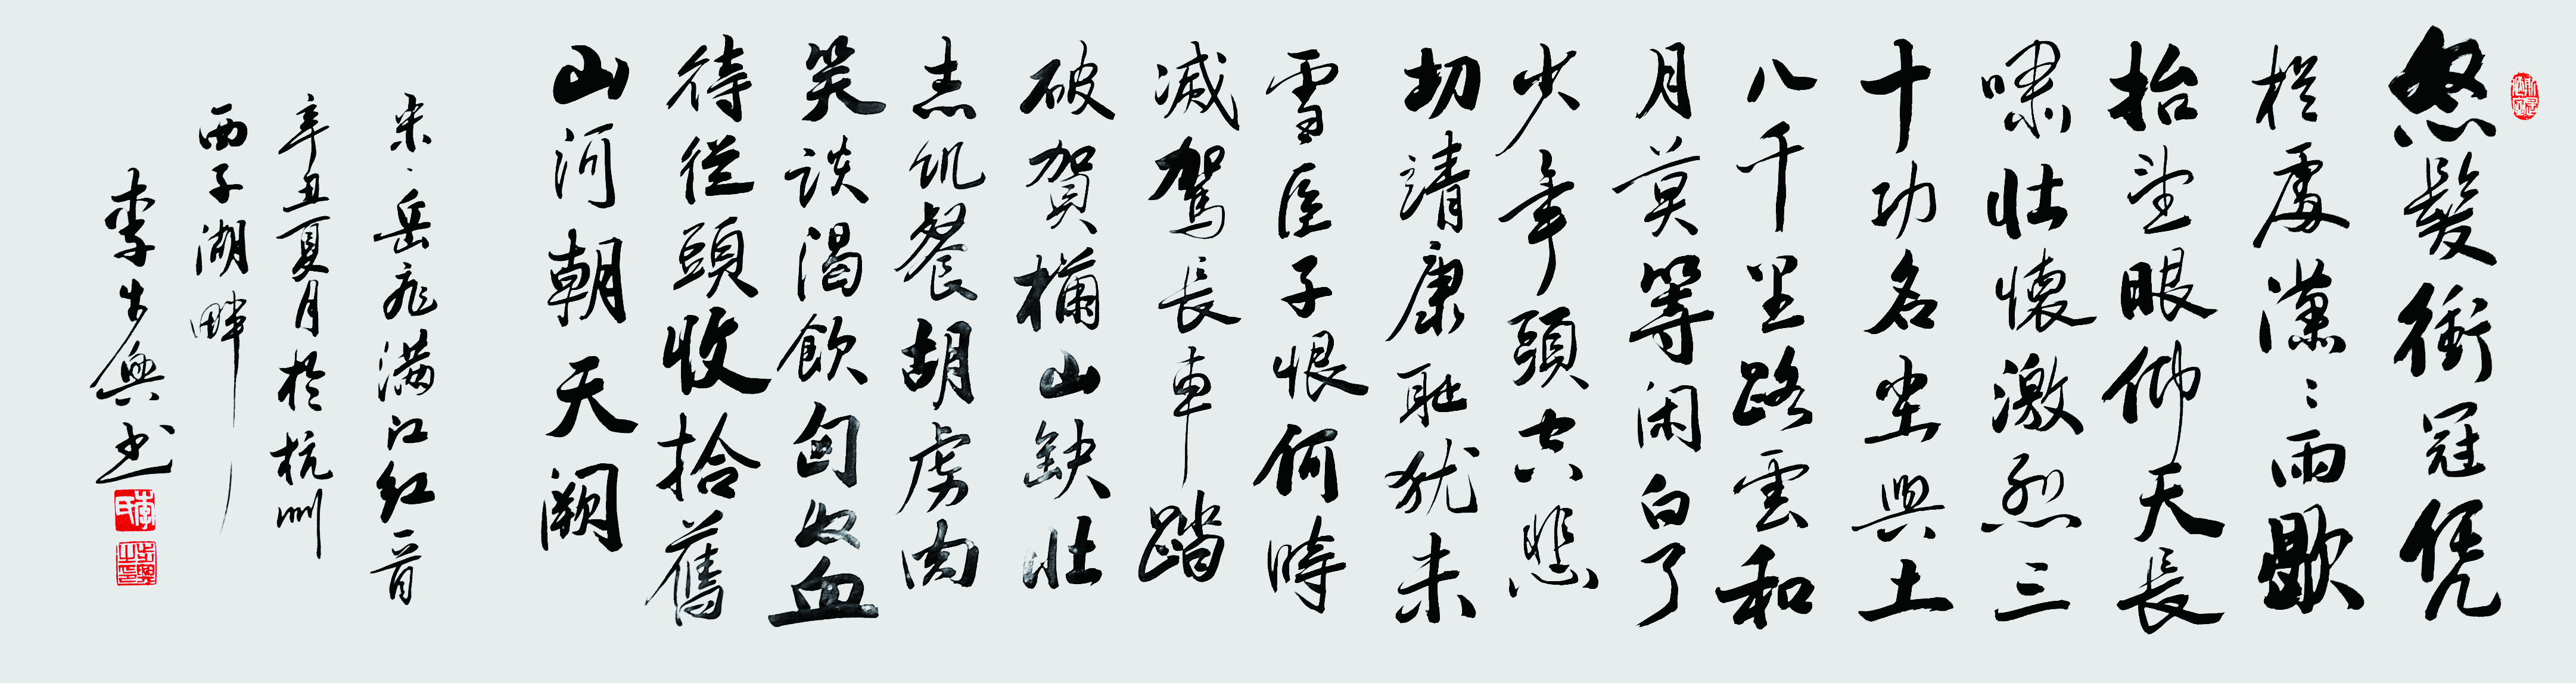 怒髮衝冠凭
栏處潇〻雨歇
抬望眼仰天長
嘯壮懷激烈三
十功名尘與土
八千里路雲和
月莫等闲白了
少年頭空悲
切靖康耻犹未
雪臣子恨何時
滅駕長車踏
破賀蘭山缺壮
志饥餐胡虏肉
笑談渴飲匈奴血
待從頭收拾舊
山河朝天阙
宋·岳飛满江红一首
辛丑夏月於杭州
西子湖畔
李興书
李氏